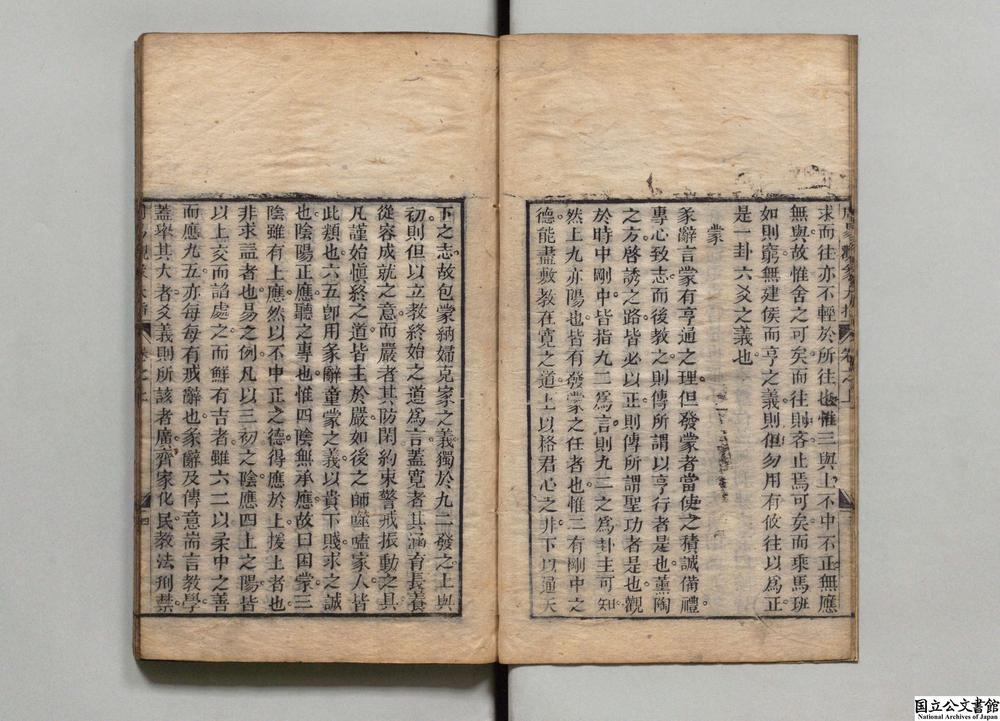 求而往亦不輕於所往也惟三與上不中不正無應
無與故惟舍之可矣而往則吝止焉可矣而乘馬班
如則窮無建侯而亨之義則但勿用有攸往以為正
是一卦六爻之義也
蒙
彖辭言蒙有亨通之理但發蒙者當使之積誠備禮
專心致志而後教之則傳所謂以亨行者是也薰陶
之方啓誘之路皆必以正則傳所謂聖功者是也觀
於時中剛中皆指九二為言則九二之為卦主可知
然上九亦陽也皆有發蒙之任者也惟二有剛中之
德能盡敷教在寬之道上以格君心之非下以通天
下之志故包蒙納婦克家之義獨於九二發之上與
初則但以立教終始之道為言蓋寬者其涵育長養
從容成就之意而嚴者其防閑約束警戒振動之具
凡謹始慎終之道皆主於嚴如後之師噬嗑家人皆
此類也六五卽用彖辭童蒙之義以貴下賤求之誠
也陰陽正應聽之專也惟四陰無承應故曰困蒙三
陰雖有上應然以不中正之德得應於上援上者也
非求益者也易之例凡以三初之陰應四上之陽皆
以上交而諂處之而鮮有吉者雖六二以柔中之善
而應九五亦每每有戒辭也彖辭及傳意耑言教學
蓋舉其大者爻義則所該者廣齊家化民教法刑禁
国立公文書館
National Archives of Japan